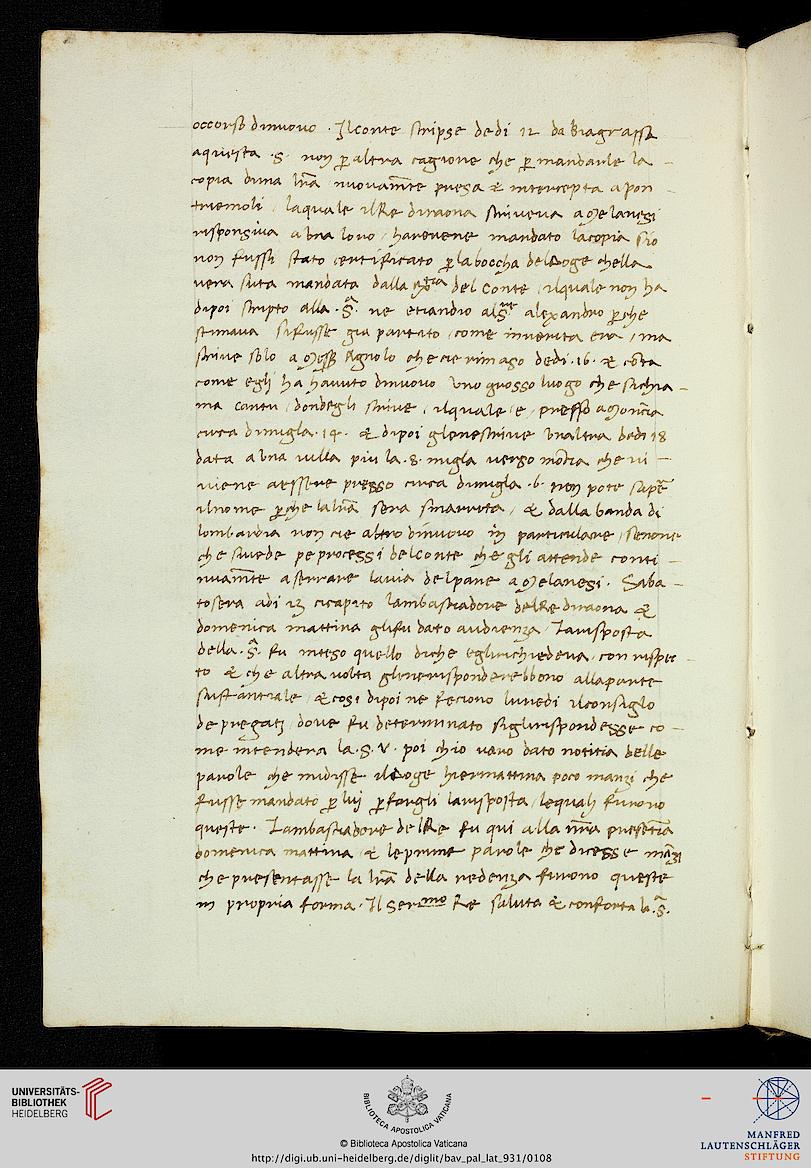 occorso dinuovo . Il conte scripse dedi 12 da biagrassa
aquesta .S. non p altra cagione che p mandarle la
copia duna lrã nuovamẽte presa & intercepta a pon
triemoli / laquale il Re diraona scriveva a Melanesi
risponsiva a una loro / harevene mandato la copia s'io
non fussi stato certificato p la boccha del Doge chella
vera suta mandata dalla del conte / ilquale non ha
dipoi scripto alla .S. ne etiandio al alexandro pche
stimava si fusse gia partito come inverita era / ma
scrive solo a Agnolo che cie rimaso dedi .16. & cõta
come egli ha havuto dinuovo uno grosso luogo che sichia
ma cantu / dondegli scrive / ilquale e / presso a Moncia
circa dimigla .14. & dipoi glenescrive unaltra dedi 18
data a una villa piu la .8. migla verso che vi
viene aessere presso circa dimigla .6. non pote sapẽ
ilnome pche la lrã sera smarrita / & dalla banda di
lombardia non cie altro dinuovo in particulare / senone
che sivede pe processi delconte che gli attende conti
nuamẽte aserrare lavia delpane a Melanesi . Saba
tosera adi 23 cicapito lambasciadore delRe diraona &
domenica mattina glifu dato audienza / Larisposta
della .S. fu inteso quello diche eglirichiedeva / con rispec
to & che altra volta glinerisponderebbono allaparte
sustantiale / & cosi dipoi ne feciono lunedi ilconsiglo
de pregati / dove fu determinato siglirispondesse co
me intendera la .S.V. poi chio varo dato notitia delle
parole che midisse ilDoge hiermattina poco inanzi che
fusse mandato p lui p fargli larisposta / lequali furono
queste . Lambasciadore delRe fu qui alla nrã presentia
domenica mattina / & leprime parole che dicesse inãzi
che presentasse la lrã della credenza furono queste
in propria forma . Il Sermo Re saluta & conforta la .S.
UNIVERSITÄTS-
BIBLIOTHEK
HEIDELBERG
BIBLIOTECA APOSTOLICA VATICANA
© Biblioteca Apostolica Vaticana
http://digi.ub.uni-heidelberg.de/diglit/bav_pal_lat_931/0108
MANFRED
LAUTENSCHLÄGER
STIFTUNG